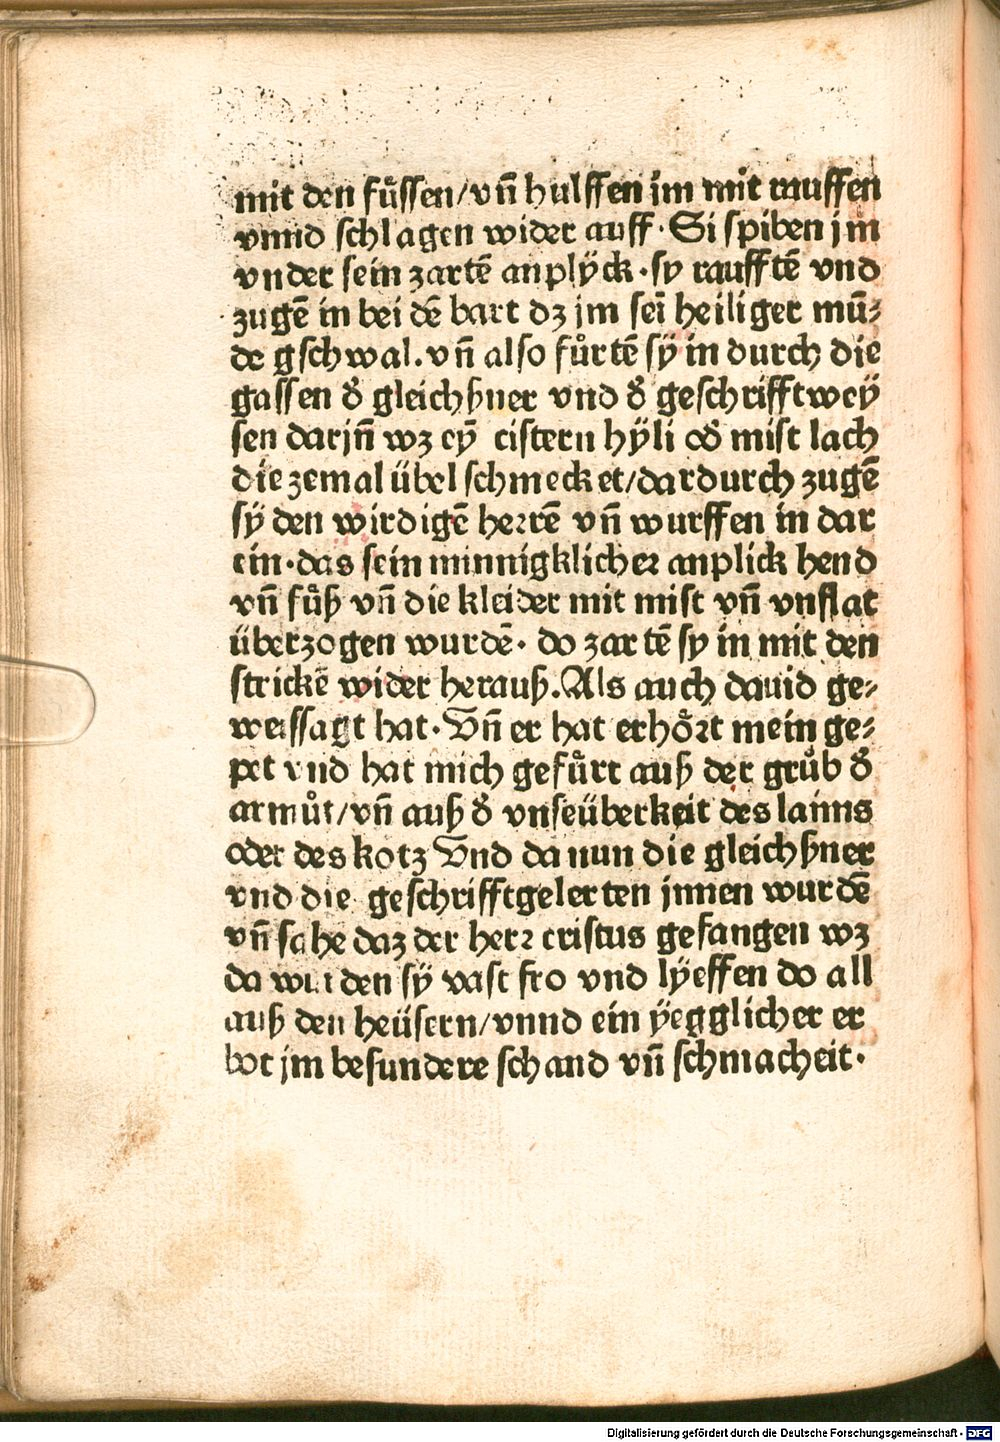 mit den fuͤſſen/vñ hulffen im mit rauffen
vnnd ſchlagen wider auff· Si ſpiben jm
vnder ſein zartē anplÿck·ſy raufftē vnd
zugē in bei dē bart dz jm ſeī heiliger mū⸗
de gſchwal.vñ alſo fuͤrtē ſÿ in durch die
gaſſen đ gleichßner vnd đ geſchrifftweÿ
ſen darjñ wz eyn̄ ciſtern hÿli ođ miſt lach
die zemal übel ſchmecket/dardurch zugē
ſÿ den wirdigē herrē vñ wurffen in dar
ein·das ſein minnigklicheꝛ anplick hend
vñ fuͤß vñ die kleider mit miſt vñ vnflat
überzogen wurdē· do zartē ſy in mit den
ſtrickē wider herauß.Als auch dauid ge⸗
weiſſagt hat· Vñ er hat erhoͤꝛt mein ge⸗
pet vnd hat mich gefuͤrt auß der gruͤb đ
armůt/vñ auß đ vnſeüberkeit des laims
oder des kotz Vnd da nun die gleichßner
vnd die geſchrifftgelerten jnnen wurdē
vñ ſahe daz der herꝛ criſtus gefangen wz
da wurden ſÿ vaſt fro vnd lÿeffen do all
auß den heüſern/vnnd ein ÿegglicher er
bot jm beſundere ſchand vñ ſchmacheit·
Digitalisierung gefördert durch die Deutsche Forschungsgemeinschaft - DFG